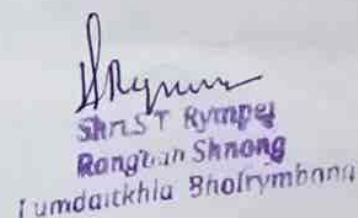 Shri.S T Rympei
Rangbah Shnong
Tumdaitkhla Bhoirymbong